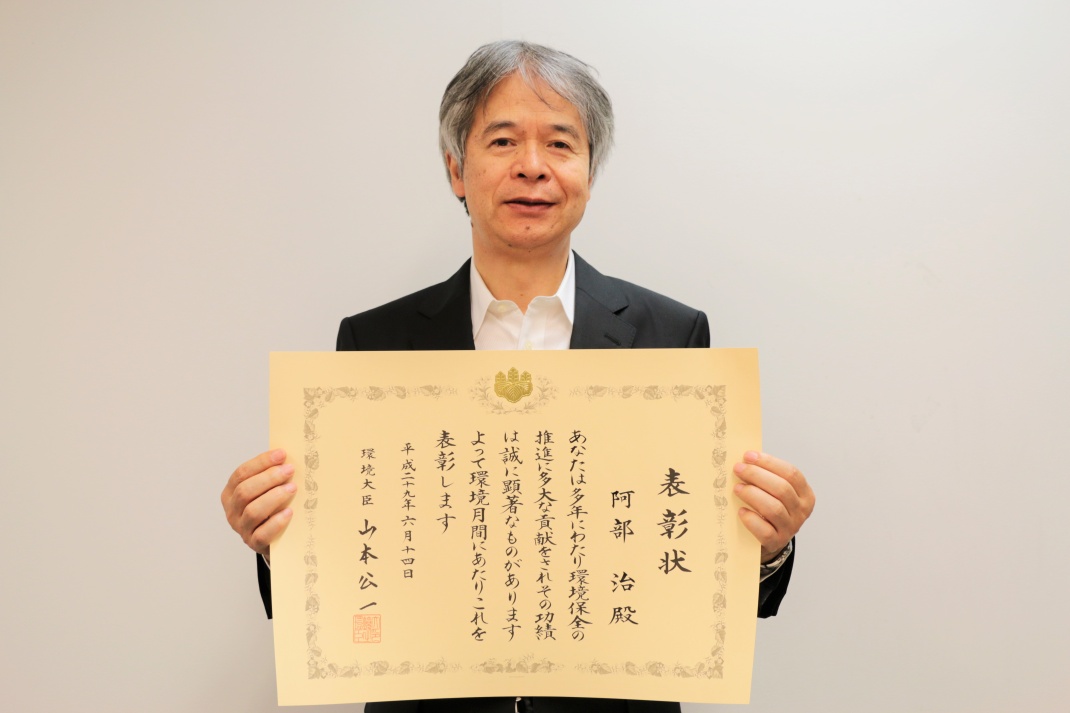 表彰状
阿部 治 殿
あなたは多年にわたり環境保全の
推進に多大な貢献をされその功績
は誠に顕著なものがあります
よって環境月間にあたりこれを
表彰します
平成二十九年六月十四日
環境大臣 山本公一